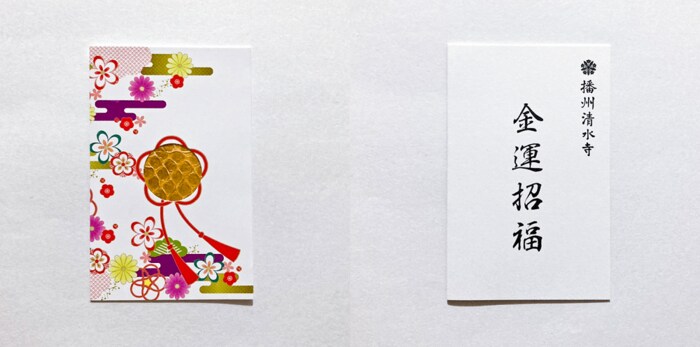 播州清水寺
金運招福